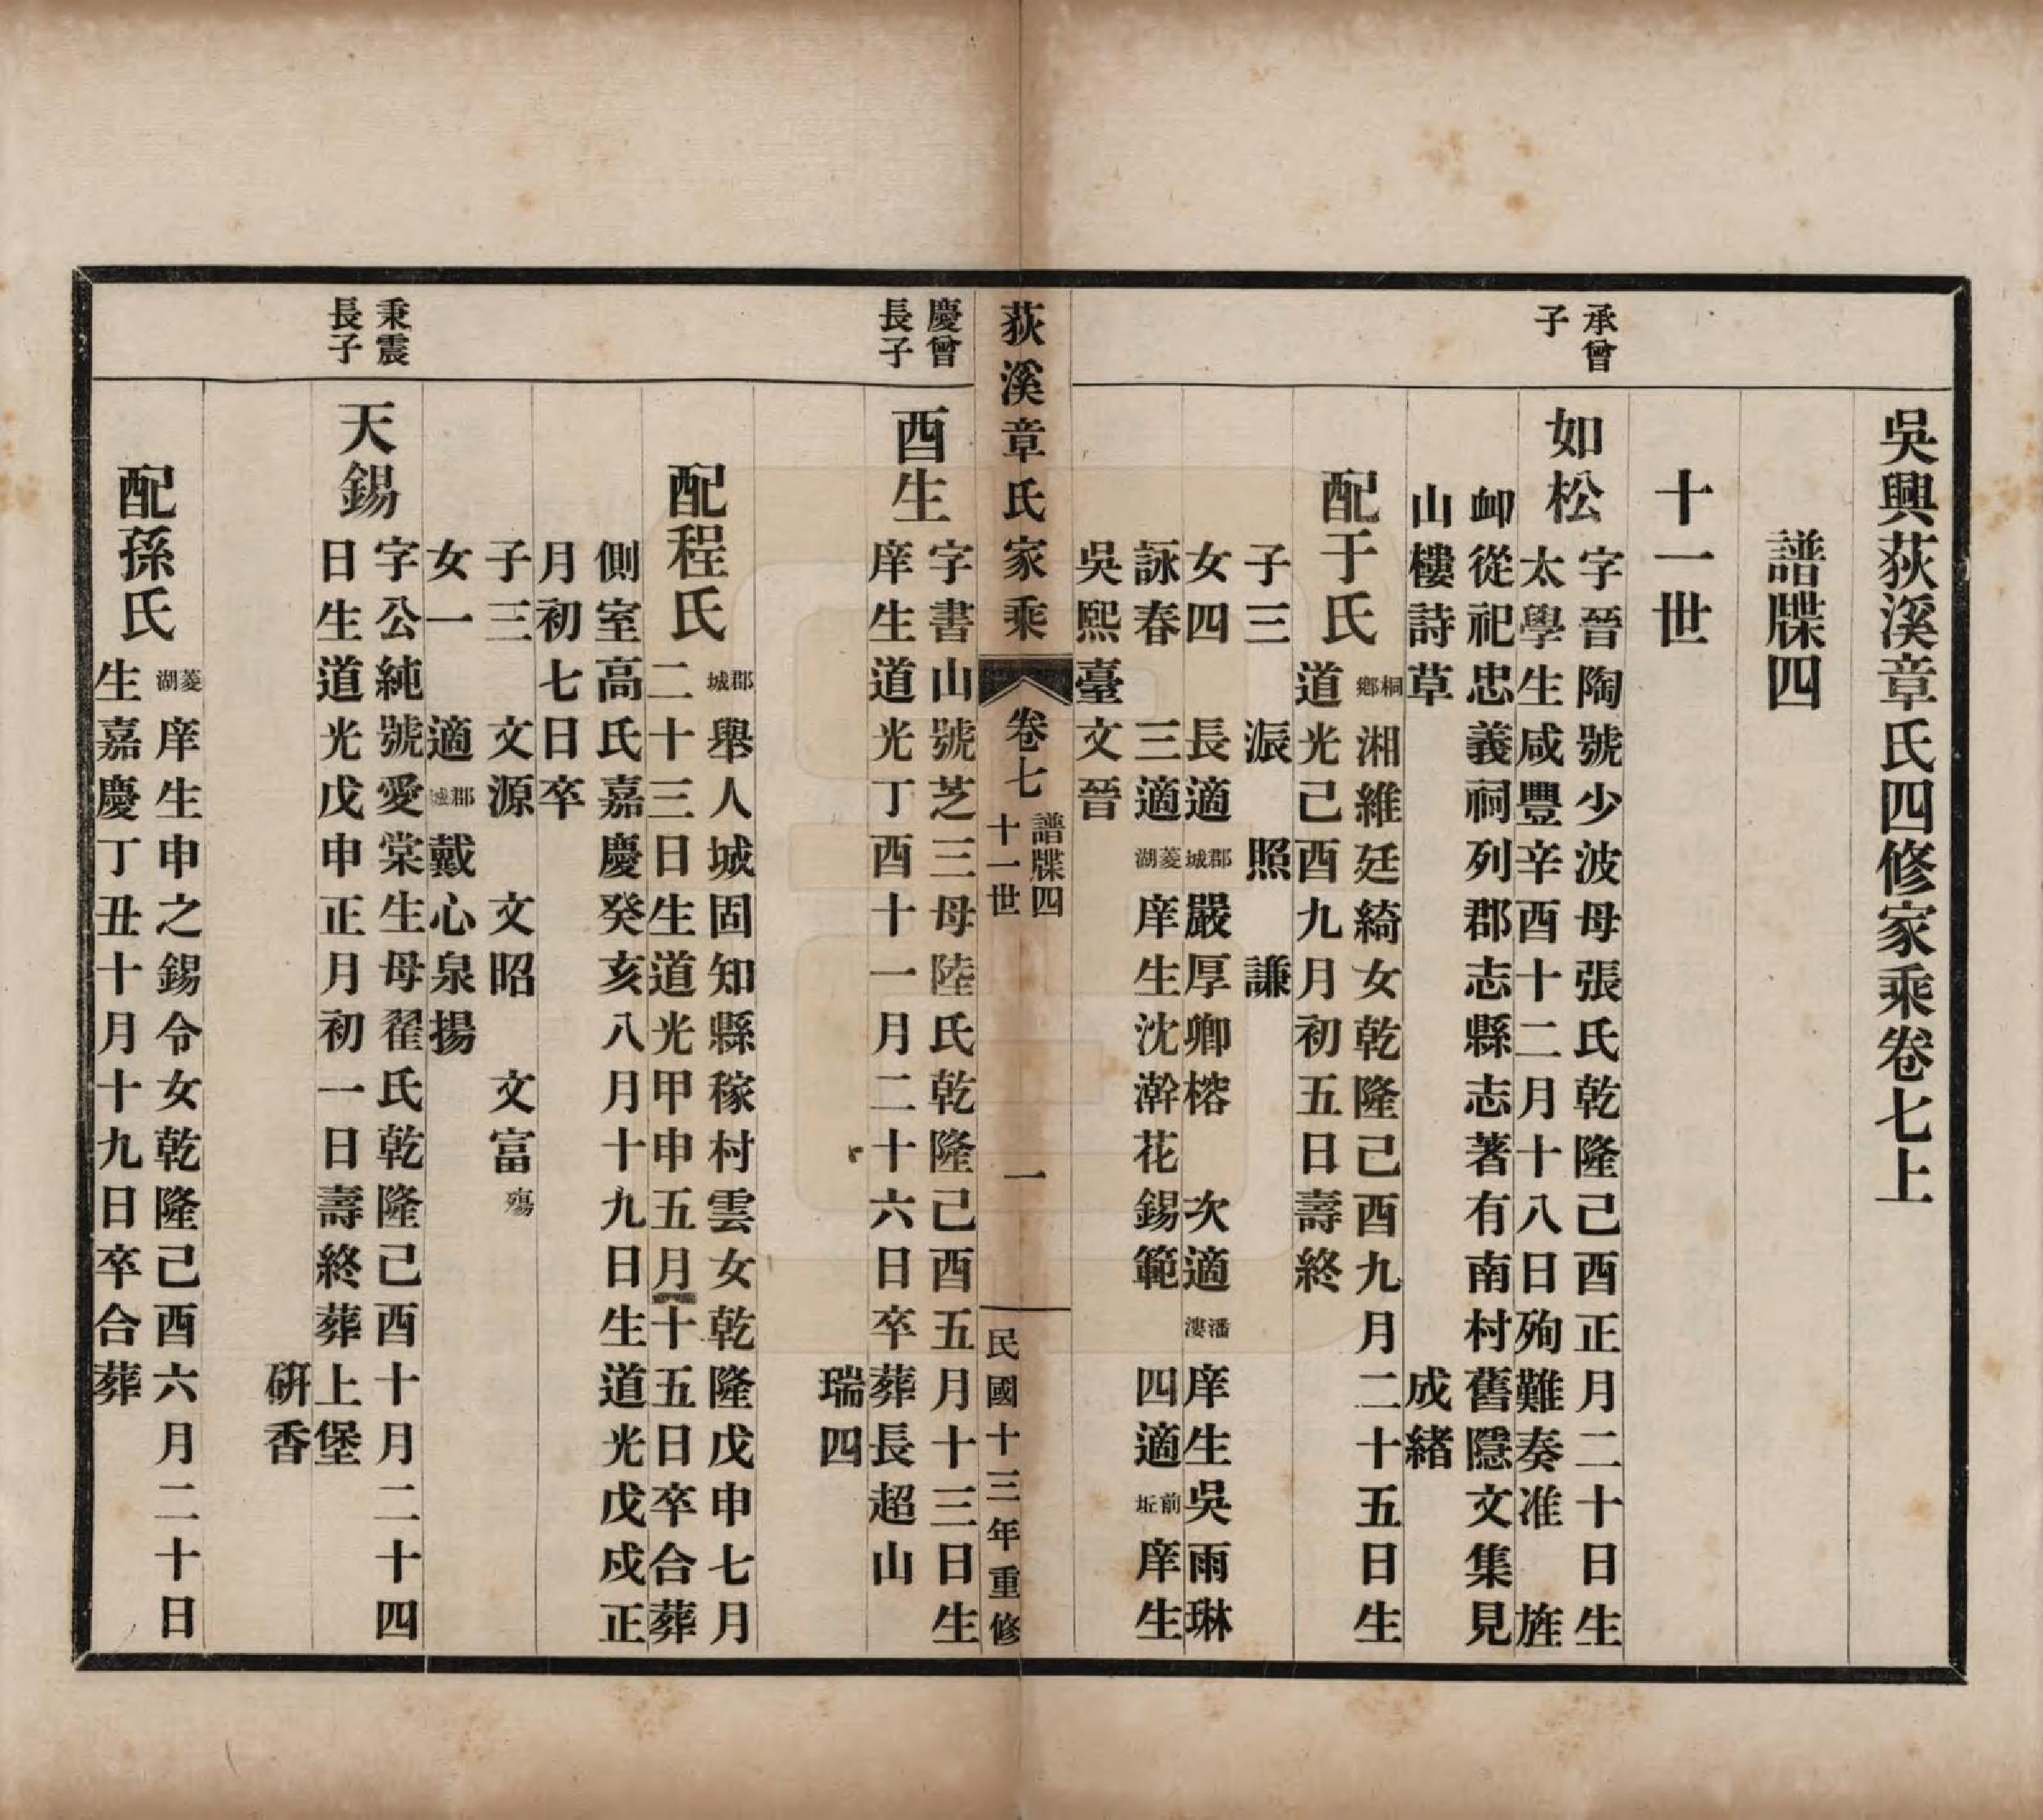 吳興荻溪章氏四修家乘卷七上
譜牒四
十一世
承曾
子
如松
字晉陶號少波母張氏乾隆己酉正月二十日生
太學生咸豐辛酉十二月十八日殉難奏准 旌
卹從祀忠義祠列郡志縣志著有南村舊隱文集見
山樓詩草 成緒
配于氏
桐鄉湘維廷綺女乾隆己酉九月二十五日生
道光己酉九月初五日壽終
子三 照 謙
女四 長適郡城嚴厚卿榕 次適潘漊庠生吳雨琳
詠春 三適菱湖庠生沈澣花錫範 四適前坵庠生
吳熙臺文晉
荻溪章氏家乘
卷七
譜牒四
十一世
一
民國十三年重修
慶曾
長子
酉生
字書山號芝三母陸氏乾隆己酉五月十三日生
庠生道光丁酉十一月二十六日卒葬長超山
瑞四
配程氏
郡城舉人城固知縣稼村雲女乾隆戊申七月
二十三日生道光甲申五月十五日卒合葬
側室高氏嘉慶癸亥八月十九日生道光戊戌正
月初七日卒
子三 文源 文昭 文富殤
女一 適郡城戴心泉揚
秉震
長子
天錫
字公純號愛棠生母翟氏乾隆己酉十月二十四
日生道光戊申正月初一日壽終葬上堡
硏香
配孫氏
菱湖庠生申之錫令女乾隆己酉六月二十日
生嘉慶丁丑十月十九日卒合葬